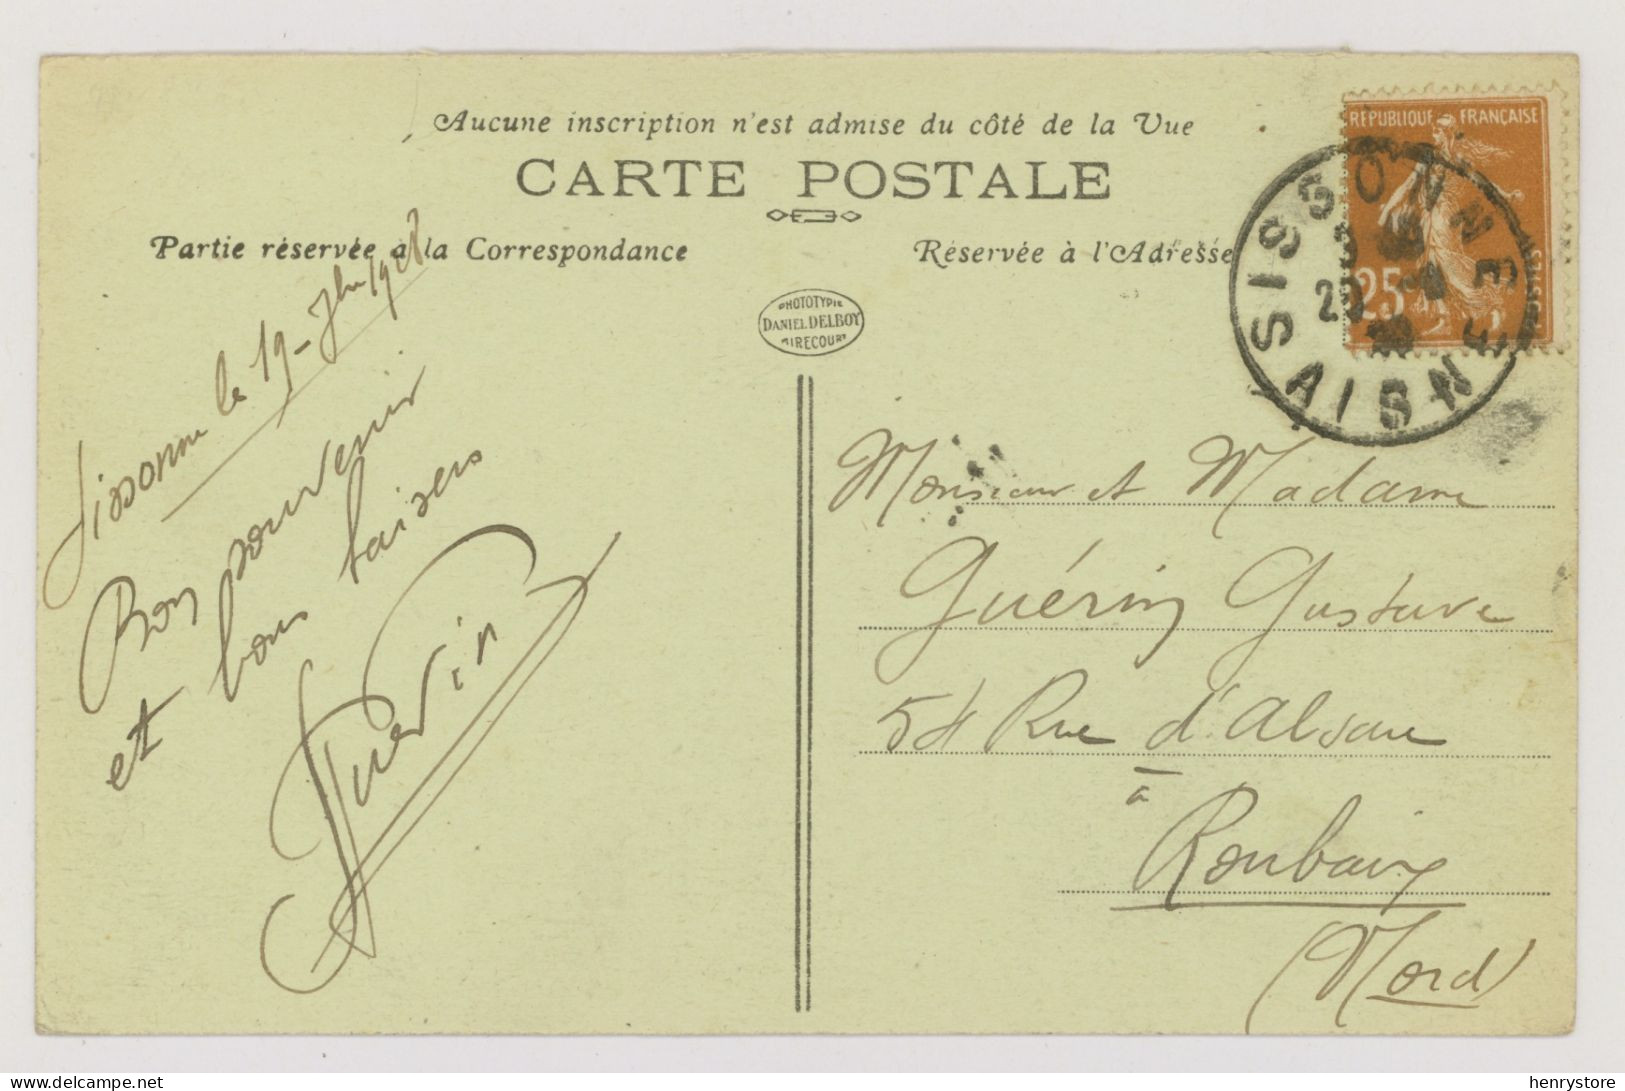 Aucune inscription n'est admise du côté de la Vue
CARTE POSTALE
Partie réservée à la Correspondance
Réservée à l'Adresse
PHOTOTYPIE
DANIEL DELBOY
MIRECOURT
RÉPUBLIQUE FRANÇAISE
25
SISSONNE
AISNE
Sissonne le 19 - 7bre 1928
Bon souvenir
et bons baisers
Monsieur et Madame
Guérin Gustave
54 Rue d'Alsace
à
Roubaix
(Nord)
henrystore